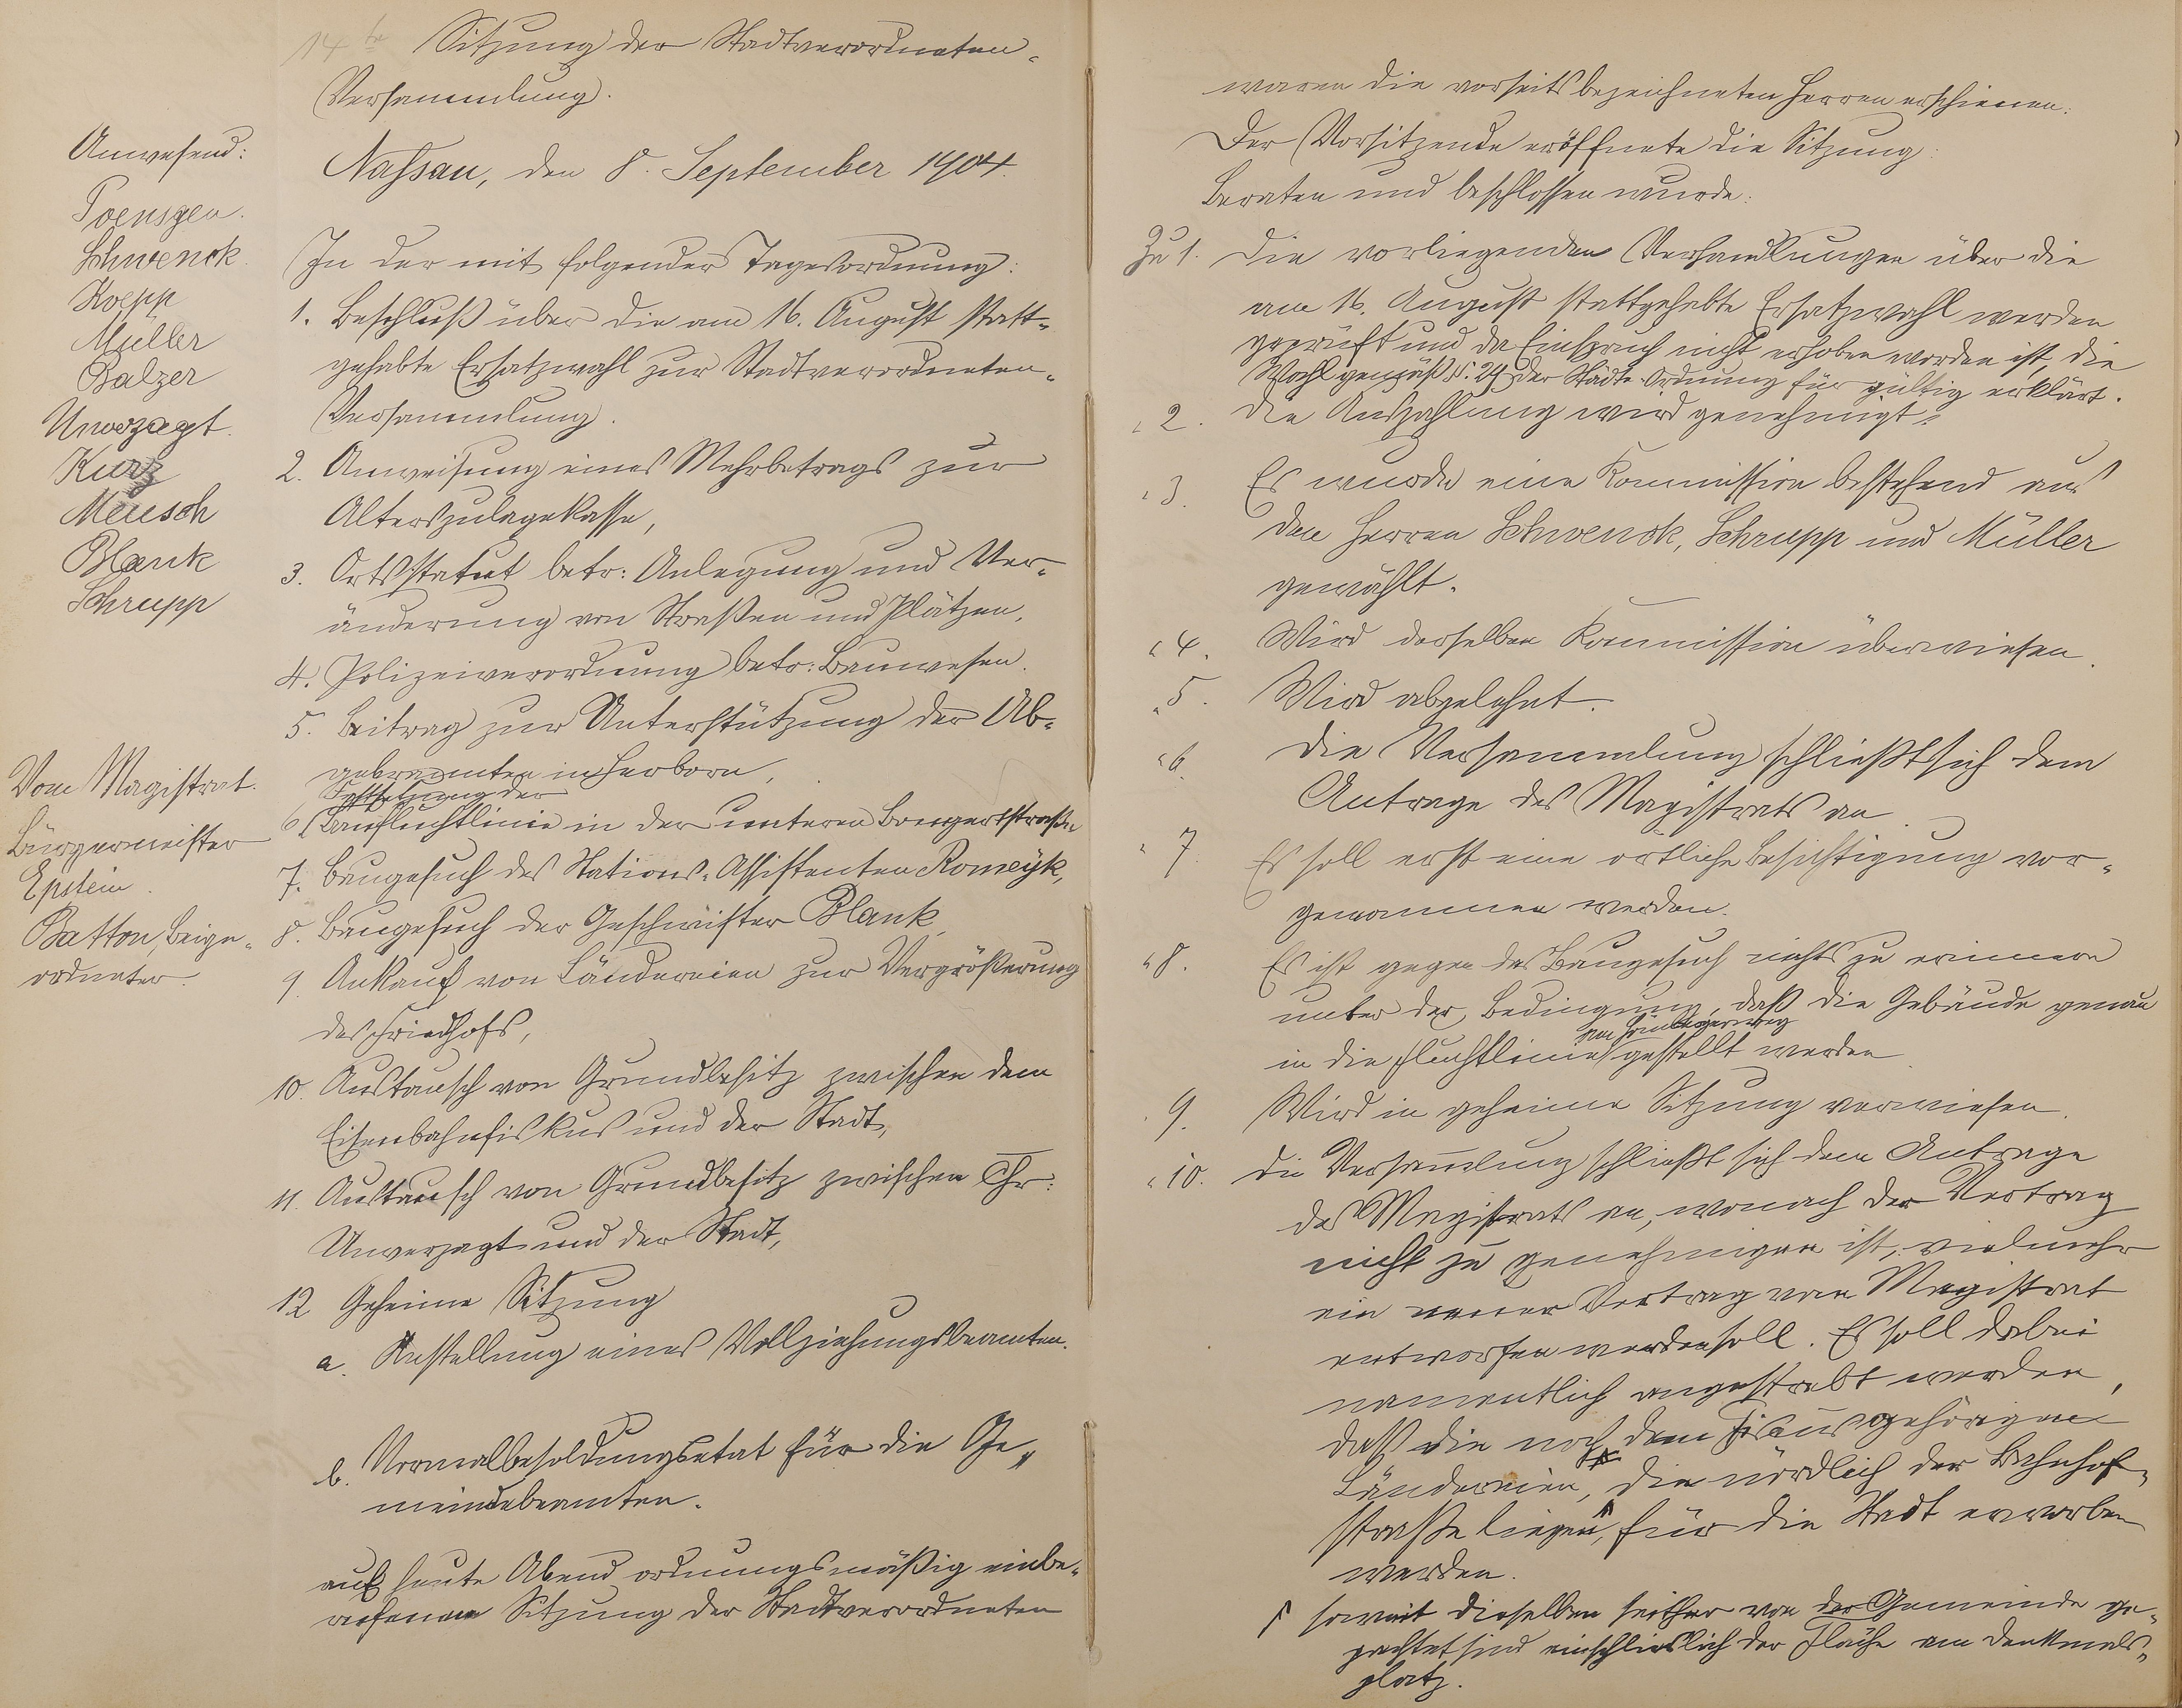 14te Sitzung der Stadtverordneten-
Versammlung.
Nassau, den 8. September 1904.
Anwesend:
Poensgen.
Schwenck
Koepp
Müller
Balzer
Unverzagt.
Kurz
Meusch
Blank
Schrupp
Vom Magistrat.
Bürgermeister
Epstein.
Batton, Beige-
ordneter.
In der mit folgender Tagesordnung:
1. Beschluß über die am 16. August statt-
gehabte Ersatzwahl zur Stadtverordneten-
Versammlung.
2. Anweisung eines Mehrbetrags zur
Alterszulagekasse,
3. Ortsstatut betr: Anlegung und Ver-
änderung von Straßen und Plätzen.
4. Polizeiverordnung betr: Bauwesen.
5. Beitrag zur Unterstützung der Ab-
gebrannten in Herborn,
Festsetzung der
6 Baufluchtlinie in der unteren Bongertstraße
7. Baugesuch des Stations-Assistenten Romeyk,
8. Baugesuch der Geschwister Blank,
9. Ankauf von Ländereien zur Vergrößerung
des Friedhofs,
10. Austausch von Grundbesitz zwischen dem
Eisenbahnfiskus und der Stadt,
11. Austausch von Grundbesitz zwischen Chr:
Unverzagt und der Stadt,
12 Geheime Sitzung
a. Anstellung eines Vollziehungsbeamten.
b. Normalbesoldungsetat für die Ge-
meindebeamten.
auf heute Abend ordnungsmäßig einbe-
rufenen Sitzung der Stadtverordneten
waren die vorseits bezeichneten Herren erschienen.
Der Vorsitzende eröffnete die Sitzung.
Beraten und beschlossen wurde:
Zu 1. Die vorliegenden Verhandlungen über die
am 16. August stattgehabte Ersatzwahl werden
geprüft und da Einspruch nicht erhoben worden ist, die
Wahl gemäß §. 27 der Städte-Ordnung für gültig erklärt.
" 2. Die Auszahlung wird genehmigt.
" 3. Es wurde eine Kommission bestehend aus
den Herren Schwenck, Schrupp und Müller
gewählt.
" 4. Wird derselben Kommission überwiesen.
" 5. Wird abgelehnt.
" 6. Die Versammlung schließt sich dem
Antrage des Magistrats an.
" 7. Es soll erst eine örtliche Besichtigung vor-
genommen werden.
" 8. Es ist gegen das Baugesuch nichts zu erinnern
unter der Bedingung, daß die Gebäude genau
in die Fluchtlinie gestellt werden
" 9. Wird in geheime Sitzung verwiesen.
" 10. Die Versammlung schließt sich dem Antrage
des Magistrats an, wonach der Vertrag
nicht zu genehmigen ist, vielmehr
ein neuer Vertrag vom Magistrat
entworfen werden soll. Es soll dabei
namentlich angestrebt werden,
daß die noch dem Fiskus gehörigen
Ländereien, die nördlich der Bahnhof-
straße liegen, für die Stadt erworben
werden.
soweit dieselben seither von der Gemeinde ge-
pachtet sind einschließlich der Fläche am Denkmals-
platz.